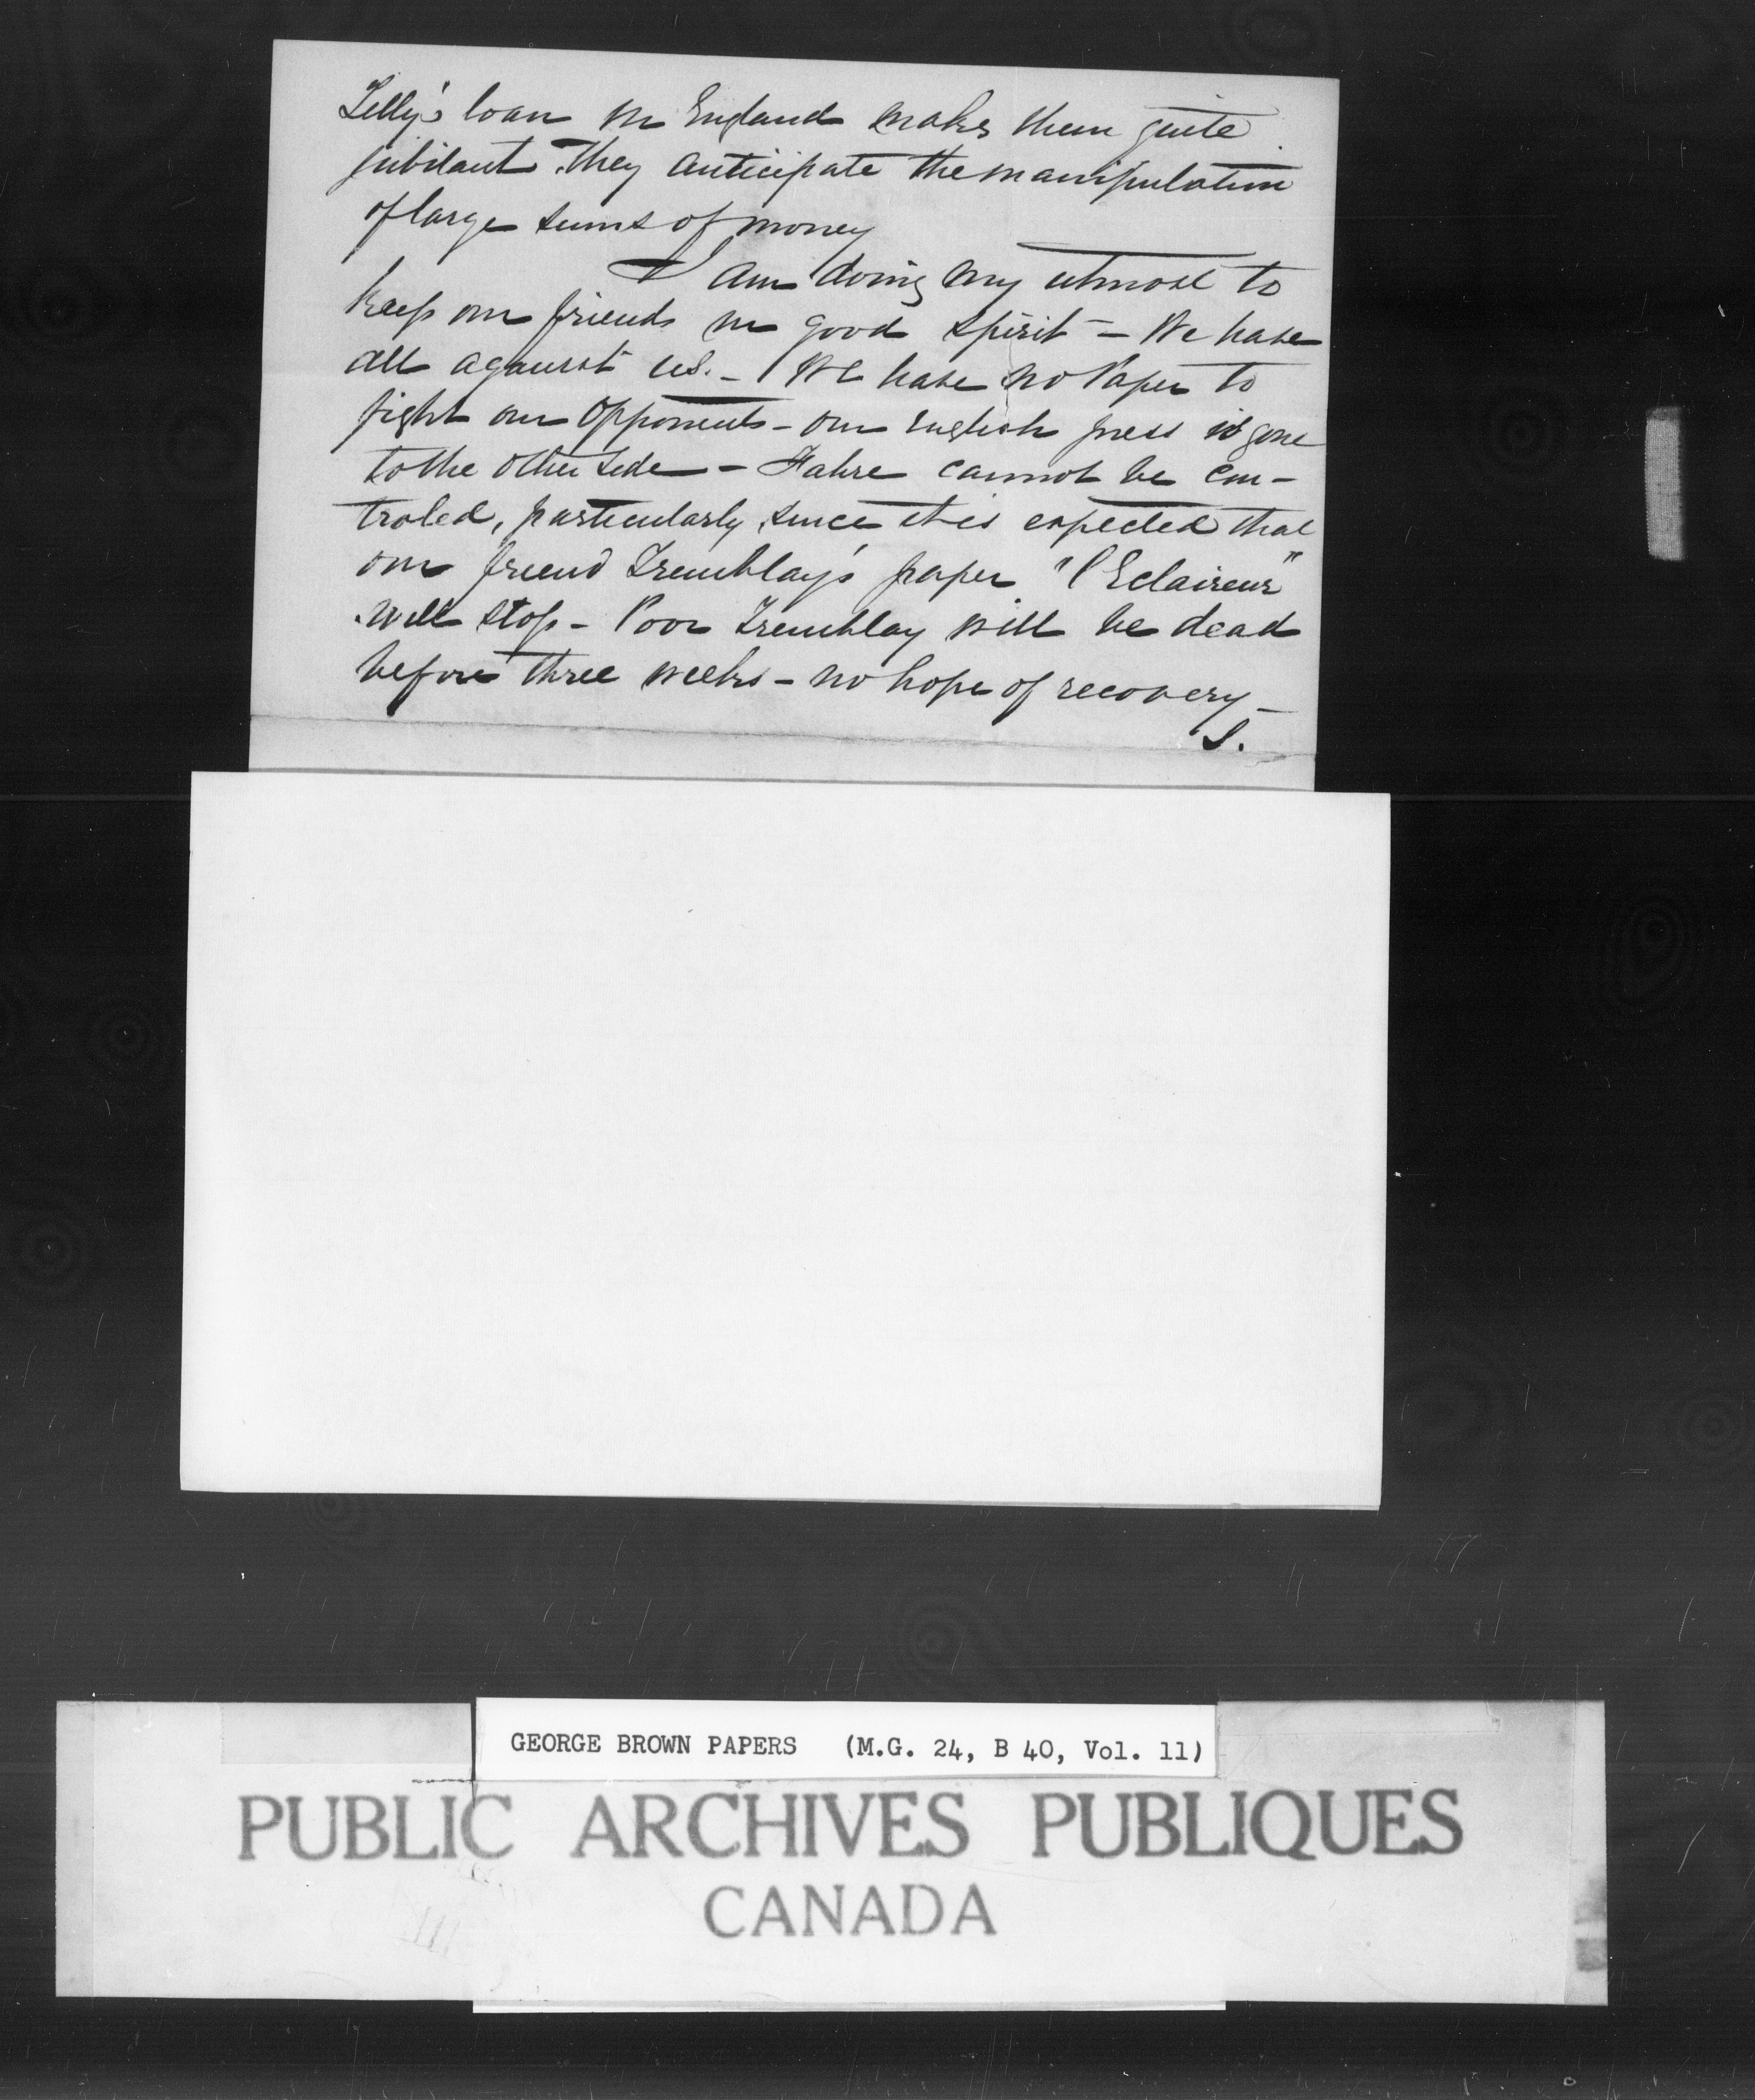 Tilly's loan in England makes them quite
jubilant. They anticipate the manipulation
of large sums of money
I am doing my utmost to
keep our friends in good spirit - We have
all against us. - We have no Paper to
fight our opponents - our English press is gone
to the other side - Fabre cannot be con-
troled, particularly since it is expected that
our friend Tremblay's paper "l'Eclaireur"
will stop - Poor Tremblay will be dead
before three weeks - no hope of recovery -
S.
GEORGE BROWN PAPERS (M.G. 24, B 40, Vol. 11)
PUBLIC ARCHIVES PUBLIQUES
CANADA